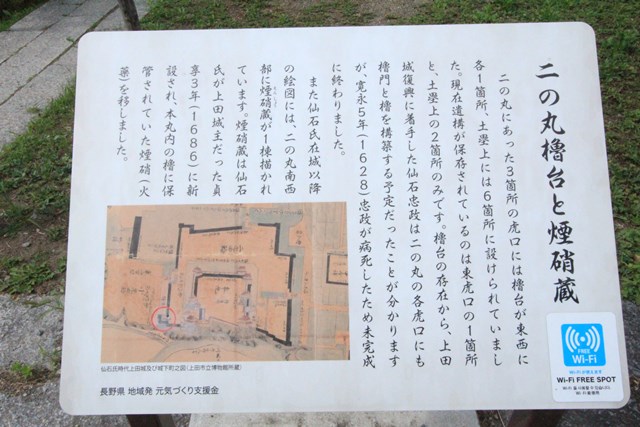 二の丸櫓台と煙硝蔵
二の丸にあった3箇所の虎口には櫓台が東西に
各1箇所、土塁上には6箇所に設けられていまし
た。現在遺構が保存されているのは東虎口の1箇所
と、土塁上の2箇所のみです。櫓台の存在から、上田
城復興に着手した仙石忠政は二の丸の各虎口にも
櫓門と櫓を構築する予定だったことが分かります
が、寛永5年(1628)忠政が病死したため未完成
に終わりました。
また仙石氏在城以降
の絵図には、二の丸南西
部に煙硝蔵が1棟描かれ
ています。煙硝蔵は仙石
氏が上田城主だった貞
享3年(1686)に新
設され、本丸内の櫓に保
管されていた煙硝(火
薬)を移しました。
仙石氏時代上田城及び城下町之図(上田市立博物館所蔵)
長野県 地域発 元気づくり支援金
FREE
Wi-Fi
Wi-Fiが使えます
Wi-Fi FREE SPOT